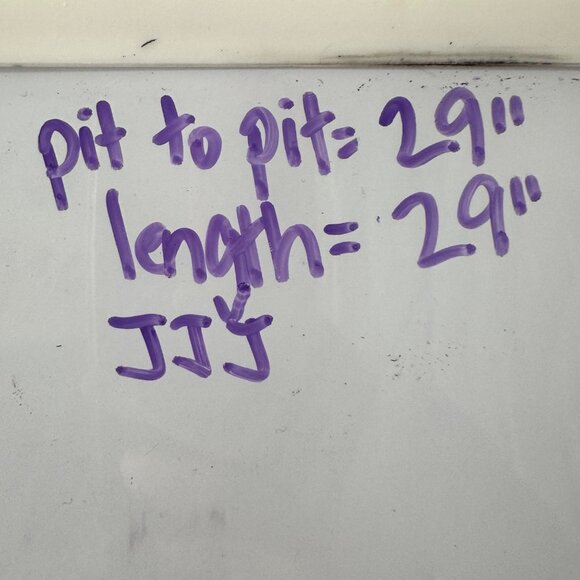 pit to pit= 29"
length= 29"
JJJ